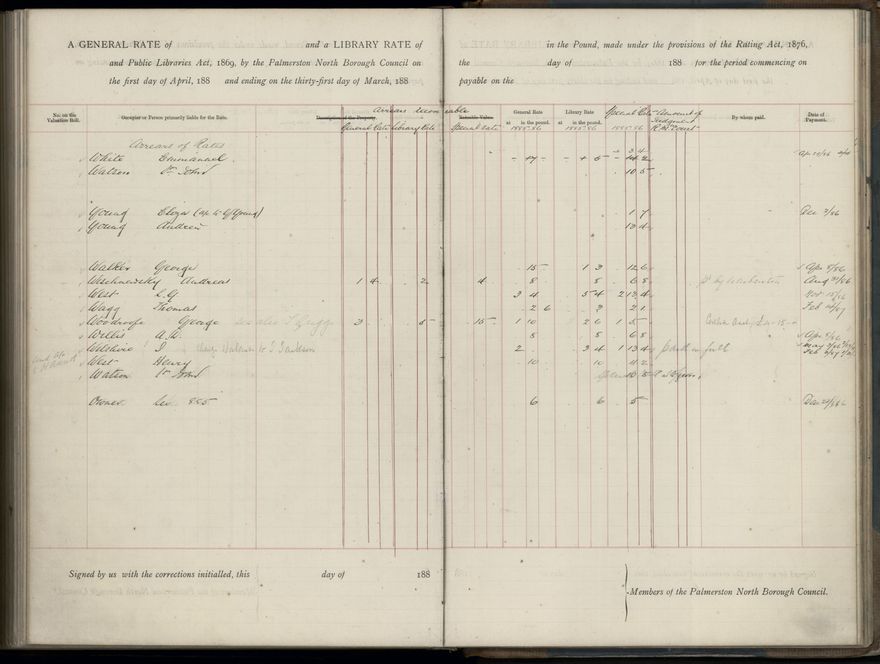 A GENERAL RATE of and a LIBRARY RATE of in the Pound, made under the provisions of the Rating Act, 1876,
and Public Libraries Act, 1869, by the Palmerston North Borough Council on the day of 188 for the period commencing on
the first day of April, 188 and ending on the thirty-first day of March, 188 payable on the
Arrears recoverable
No. on the Valuation Roll. Occupier or Person primarily liable for the Rate. Description of the Property. Rateable Value. General Rate Library Rate Special Rate Amount of Judgment By whom paid. Date of Payment.
General Rate Library Rate Special Rate at in the pound. at in the pound. R.M. Court
1885.86 1885.86 1885.86
Arrears of Rates
White Emmanuel 17 14 2
Watson Wm John 10 5
Young Eliza 1 7 Dec 2/86
Young Andrew 13 4
Walker George 15 1 3 12 6 Apr 8/86
Wischnewsky Andreas 1 4 2 4 8 8 6 8 Aug 31/86
West E.G. 3 4 5 4 2 13 4
Wagg Thomas 2 6 3 2 1
Woodroofe George 3 5 15 1 10 2 6 1 5
Willis A.R. 8 8 6 8
Wiltshire J 2 3 4 1 13 4
West Henry 10 10 4 2
Watson Wm John
Owner Sec. 885 6 6 5
Signed by us with the corrections initialled, this day of 188
Members of the Palmerston North Borough Council.